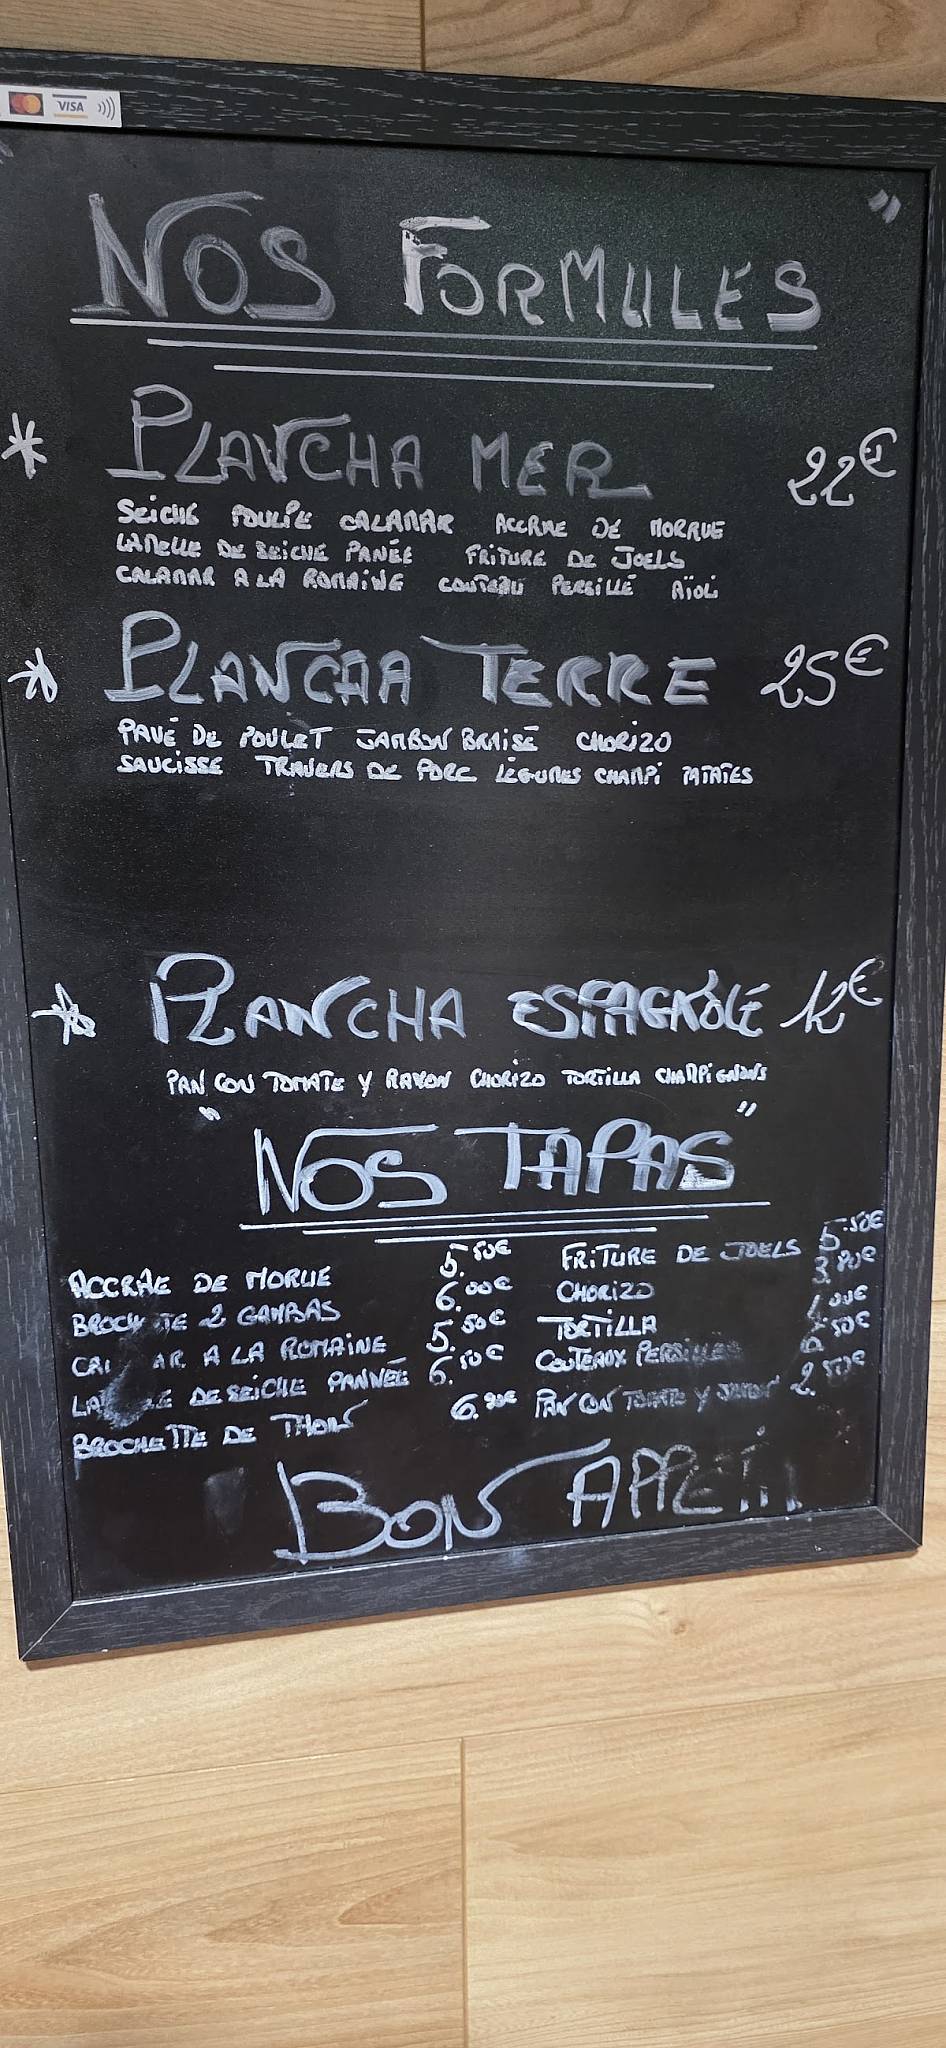 VISA
NOS FORMULES "
* PLANCHA MER 22€
SEICHE POULPE CALAMAR ACCRAE DE MORRUE
LAMELLE DE SEICHE PANÉE FRITURE DE JOELS
CALAMAR A LA ROMAINE COUTEAU PERSILLÉ AÏOLI
* PLANCHA TERRE 25€
PAVÉ DE POULET JAMBON BRAISÉ CHORIZO
SAUCISSE TRAVERS DE PORC LÉGUMES CHAMPI PATATES
* PLANCHA ESPAGNOLE 12€
PAN CON TOMATE Y CHORIZO TORTILLA CHAMPIGNONS
" NOS TAPAS "
ACCRAE DE MORUE 5.50€
BROCHETTE 2 GAMBAS 6.00€
CALAMAR A LA ROMAINE 5.50€
LAMELLE DE SEICHE PANNÉE 6.50€
BROCHETTE DE THON 6.90€
FRITURE DE JOELS 5.50€
CHORIZO 3.80€
TORTILLA
COUTEAUX PERSILLÉS 6.50€
PAN CON TOMATE Y JAMON 2.50€
BON APPETIT